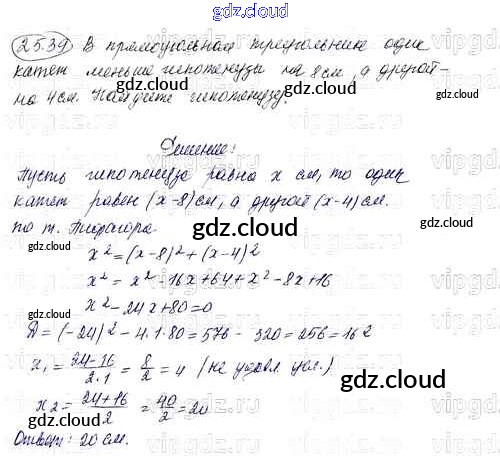 gdz.cloud
25.39 В прямоугольном треугольнике один
катет меньше гипотенузы на 8 см, а другой -
на 4 см. Найдите гипотенузу.
gdz.cloud
gdz.cloud
Решение:
gdz.cloud
Пусть гипотенуза равна x см, то один
катет равен (x-8) см, а другой (x-4) см.
gdz.cloud
по т. Пифагора.
x² = (x-8)² + (x-4)²
gdz.cloud
x² = x² - 16x + 64 + x² - 8x + 16
gdz.cloud
x² - 24x + 80 = 0
gdz.cloud
Д = (-24)² - 4·1·80 = 576 - 320 = 256 = 16²
x₁ = 24-16/2·1 = 8/2 = 4 (не удовл усл.)
gdz.cloud
x₂ = 24+16/2 = 40/2 = 20
gdz.cloud
Ответ: 20 см.